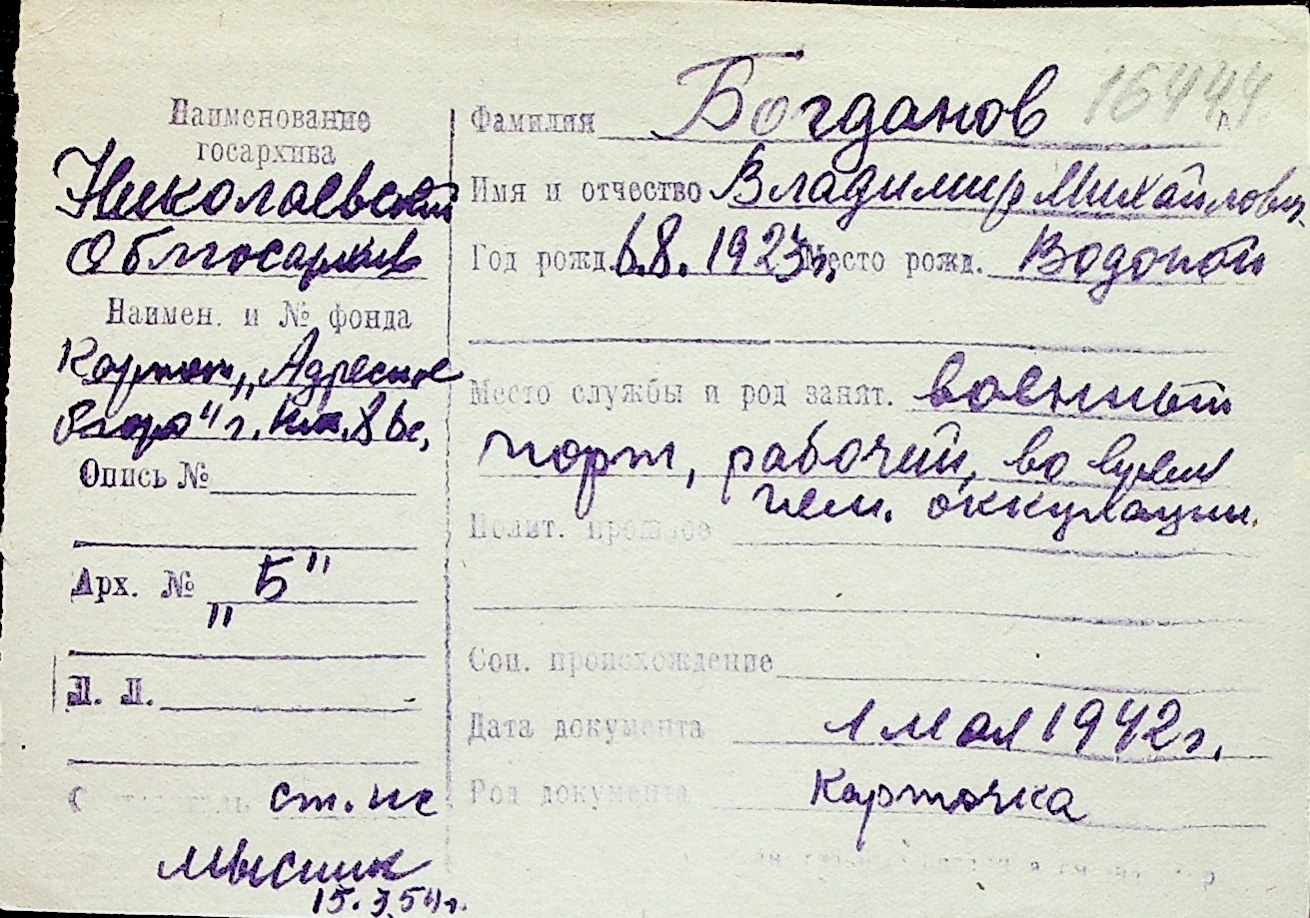 16444
Наименование
госархива
Николаевский
Облгосархив
Наимен. и № фонда
Картот. „Адресное
бюро" г.
Опись №
Арх. № „Б"
"
Л. Л.
ст.
Мысник
15.3.54г.
Фамилия Богданов
Имя и отчество Владимир Михайлович
Год рожд. 6.8.1923г. Место рожд. Водопой
Место службы и род занят. военный
порт, рабочий, во время
нем. оккупации.
Полит. прошлое
Соц. происхождение
Дата документа 1 мая 1942г.
Род документа Карточка